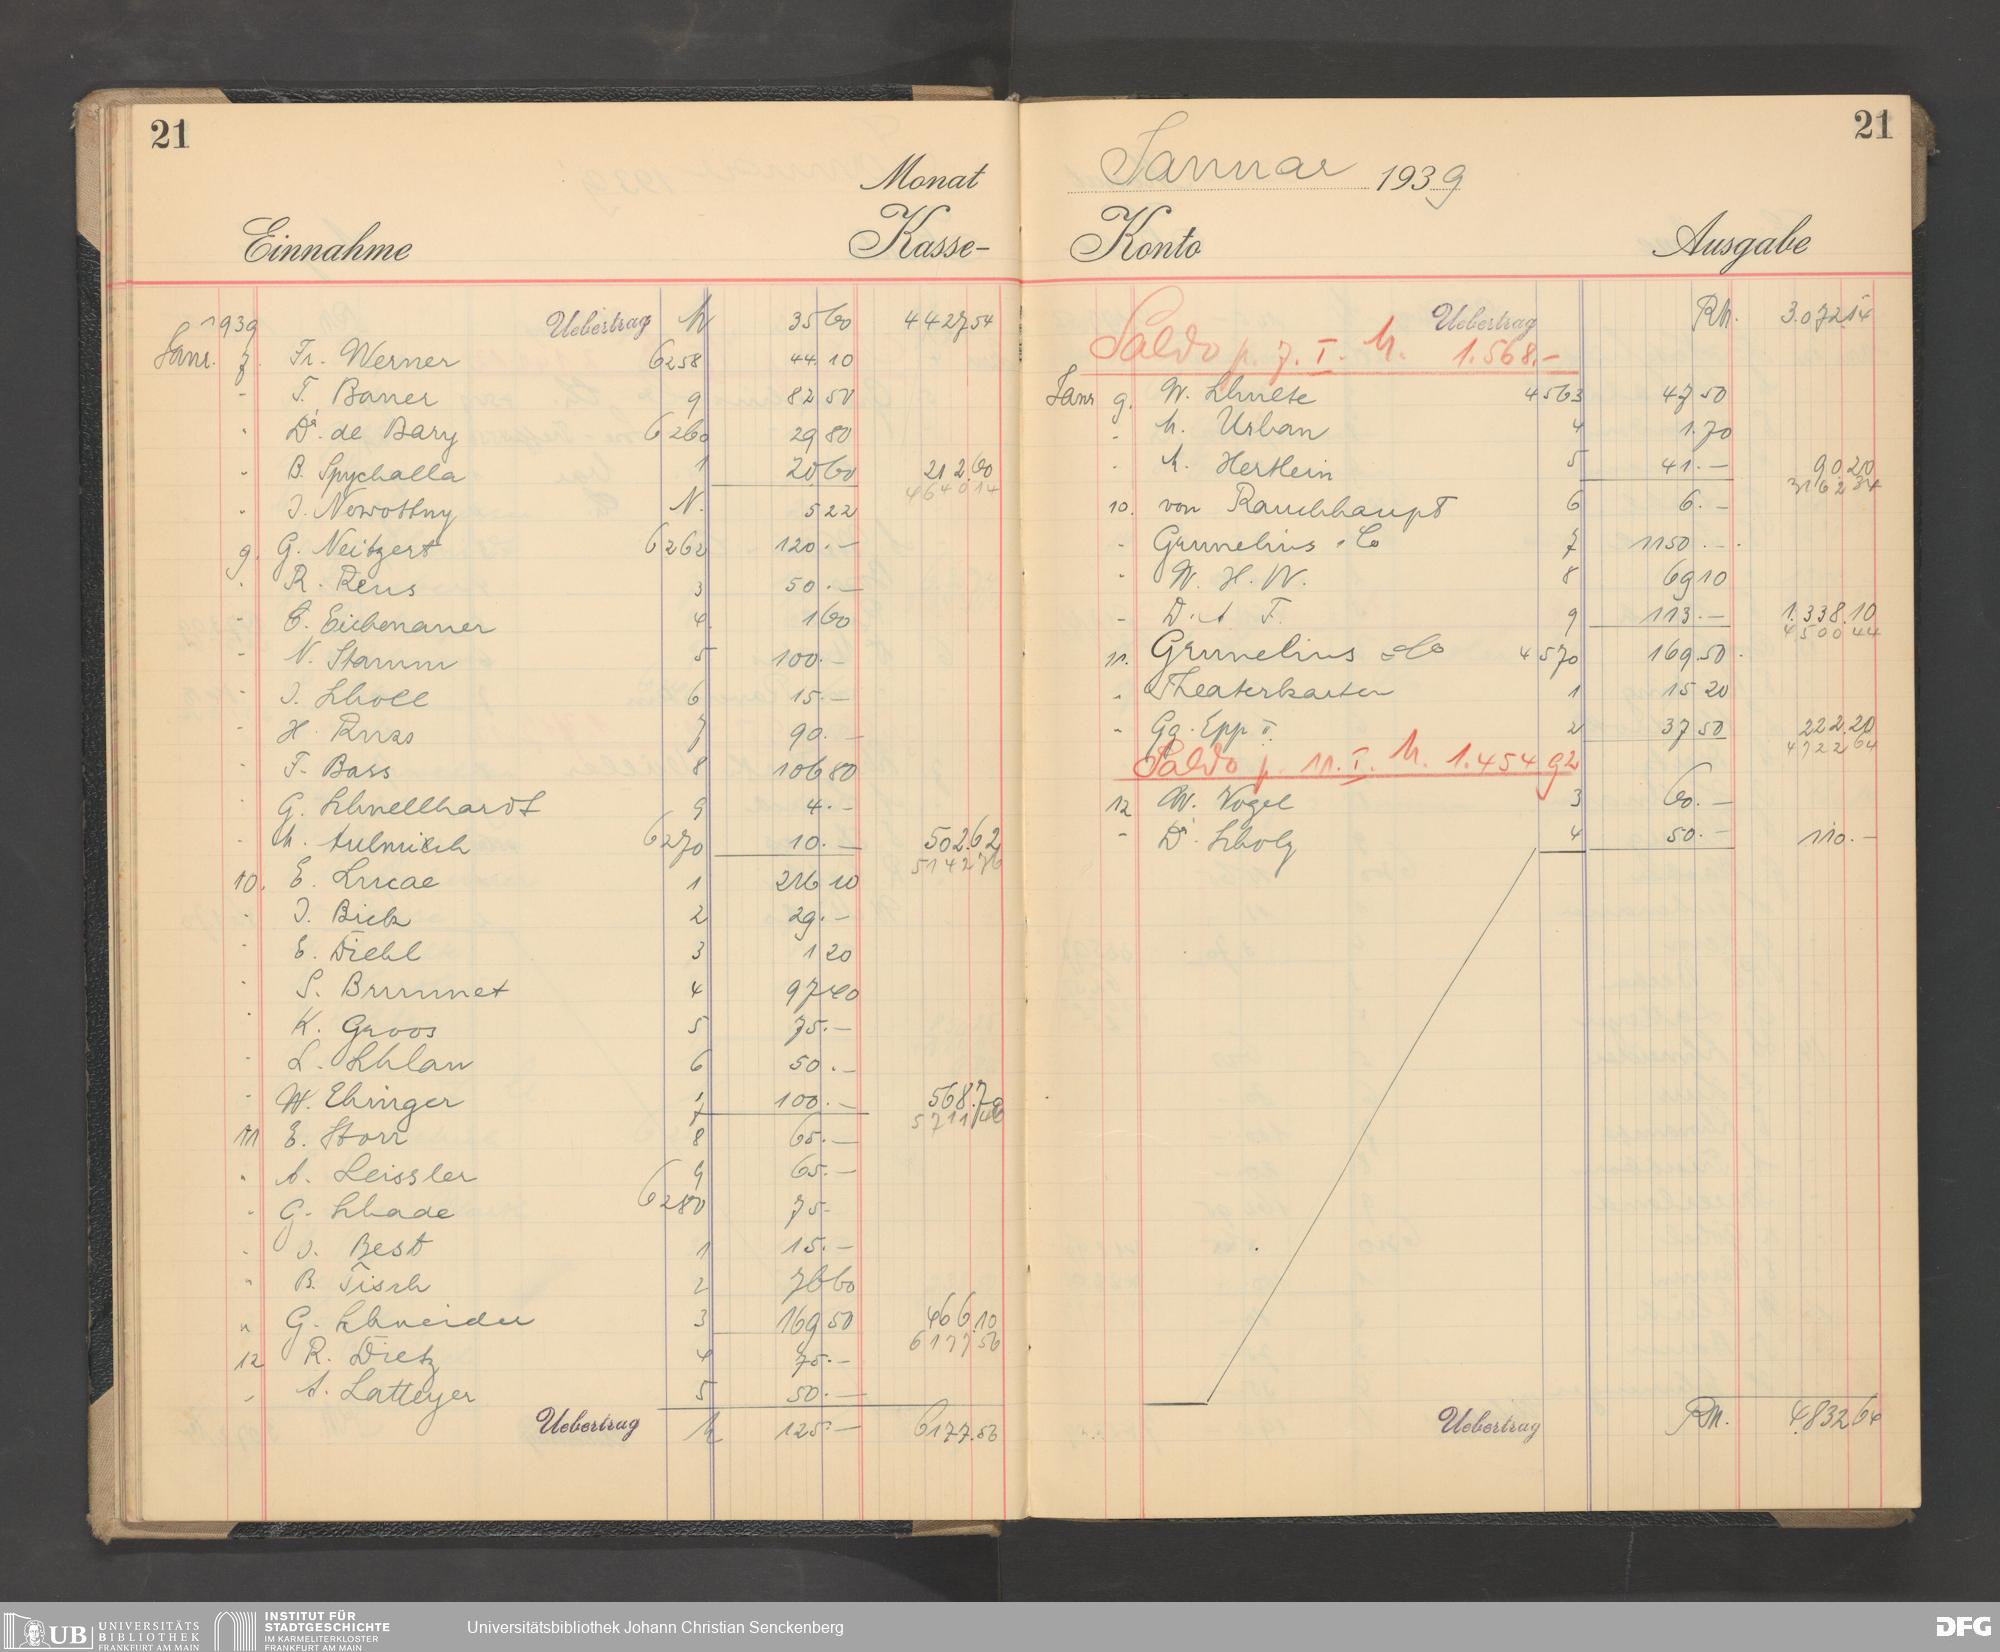 21
Monat
Einnahme Kasse-
1939 Uebertrag M 35 60 4427 54
Janr. 7. Fr. Werner 6258 44.10
- T. Bauer 9 82 50
- Dr. de Bary 6260 29 80
- B. Spychalla 1 20 60 212.60
4640 14
- J. Nowottny N. 5 22
9. G. Neitzert 6262 120.-
- R. Rens 3 50.-
- E. Eichenauer 4. 1 60
- N. Stamm 5 100.-
- J. Scholl 6 15.-
- H. Russ 7 90.-
- F. Bass 8 106 80
- G. Schnellhardt 9 4.-
- M. Aulmich 6270 10.- 502.62
5142 76
10. E. Lucae 1 216 10
- J. Bick 2 29.-
- E. Diehl 3 1 20
- S. Brummet 4 97 40
- K. Groos 5 75.-
- L. Schlau 6 50.-
- W. Ehinger 7 100.- 568.70
5711 46
11 E. Storr 8 65.-
" A. Leissler 9 65.-
- G. Schade 6280 75-
- J. Best 1 15.-
" B. Tisch 2 76 60
" G. Schneider 3 169 50 466.10
6177 56
12 R. Dietz 4 75.-
- A. Latteyer 5 50.-
Uebertrag M 125.- 6177.56
21
Januar 1939
Konto Ausgabe
Uebertrag RM. 3.072.14
Saldo p. 7. I. M. 1.568.-
Janr 9. W. Schulte 4563 47 50
- M. Urban 4 1.70
- M. Hertlein 5 41.- 90.20
3162 34
10. von Rauchhaupt 6 6.-
- Grunelius & Co 7 1150.-
- W. H. W. 8 69 10
- D. A. F. 9 113.- 1.338.10
4500 44
11. Grunelius & Co 4570 169.50
- Theaterkarten 1 15 20
- Gg. Epp I. 2 37 50 222.20
4722 64
Saldo p. 11. I. M. 1.454 92
12 W. Vogel 3 60.-
- Dr. Scholz 4 50.- 110.-
Uebertrag RM. 4.832 64
UB UNIVERSITÄTS
BIBLIOTHEK
FRANKFURT AM MAIN
INSTITUT FÜR
STADTGESCHICHTE
IM KARMELITERKLOSTER
FRANKFURT AM MAIN
Universitätsbibliothek Johann Christian Senckenberg
DFG